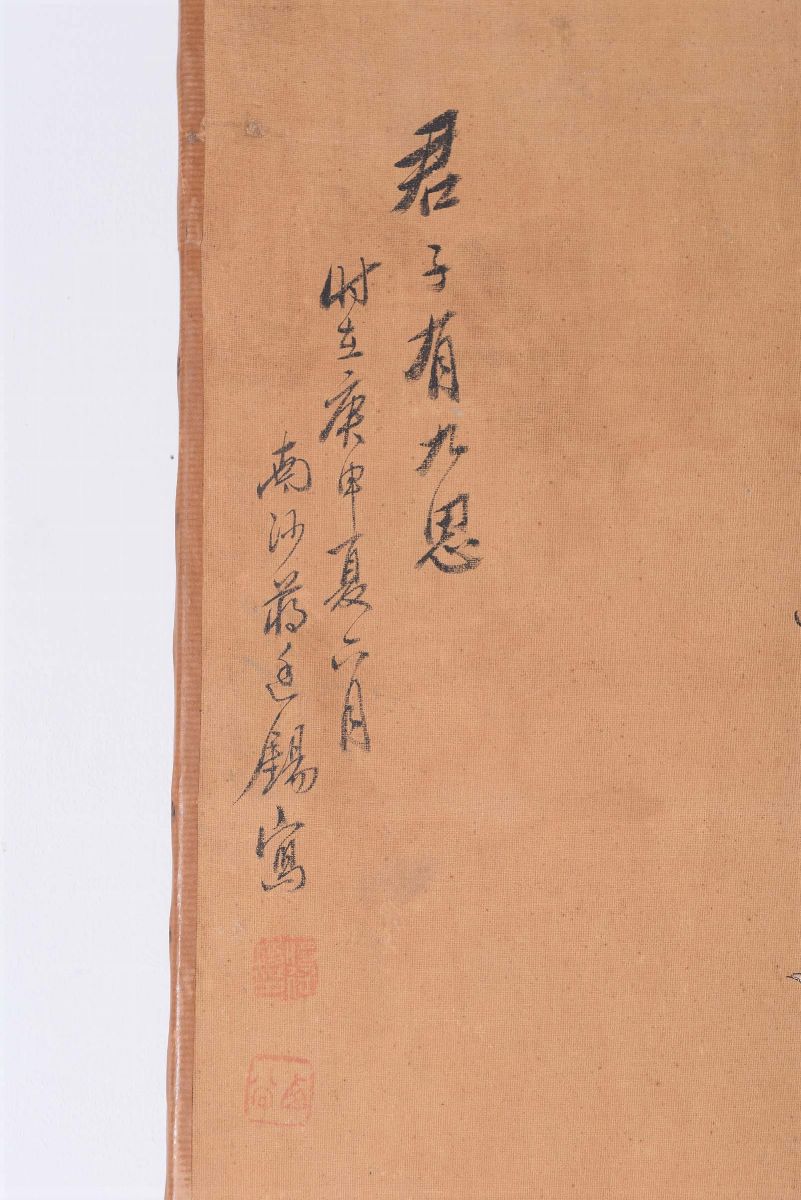 君子有九思
时在庚申夏六月
南沙蒋廷錫寫